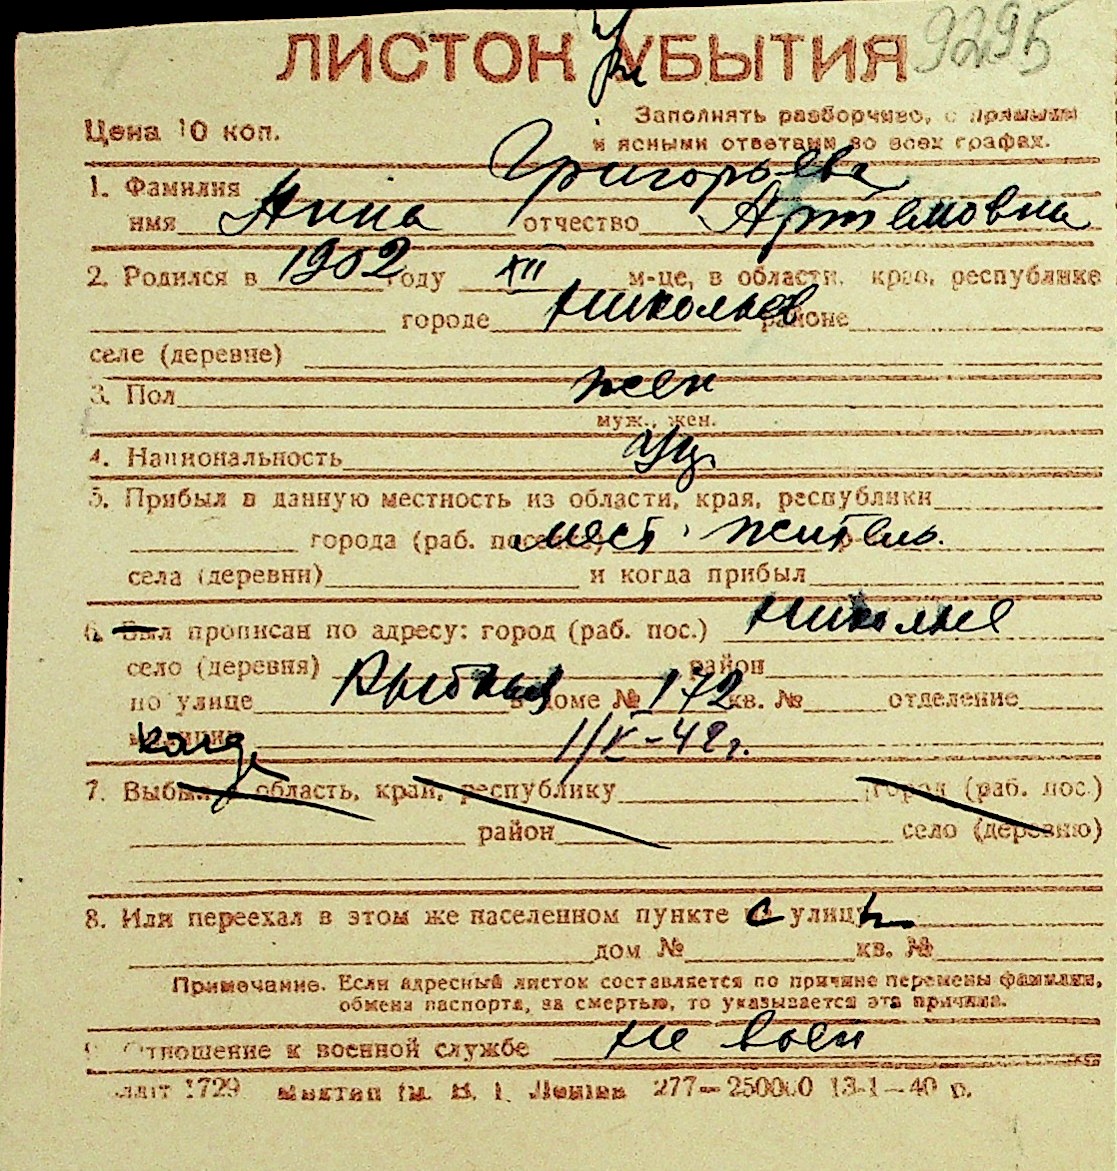 9295
ЛИСТОК УБЫТИЯ
Цена 10 коп.
Заполнять разборчиво, с прямыми
и ясными ответами во всех графах.
1. Фамилия Григорьева
имя Анна отчество Артемовна
2. Родился в 1902 году XII м-це, в области, края, республике
городе Николаев районе
селе (деревне)
3. Пол жен
муж., жен.
4. Национальность
5. Прибыл в данную местность из области, края, республики
города (раб. поселка) мест. житель
села (деревни) и когда прибыл
6. Был прописан по адресу: город (раб. пос.) Николаев
село (деревня) район
по улице Рыбная в доме № 172 кв. № отделение
милиции
7. Выбыл область, край, республику город (раб. пос.)
район село (деревню)
8. Или переехал в этом же населенном пункте с улицы
дом № кв. №
Примечание. Если адресный листок составляется по причине перемены фамилии,
обмена паспорта, за смертью, то указывается эта причина.
9. Отношение к военной службе не воен
1729 277—250000 13-1—40 р.